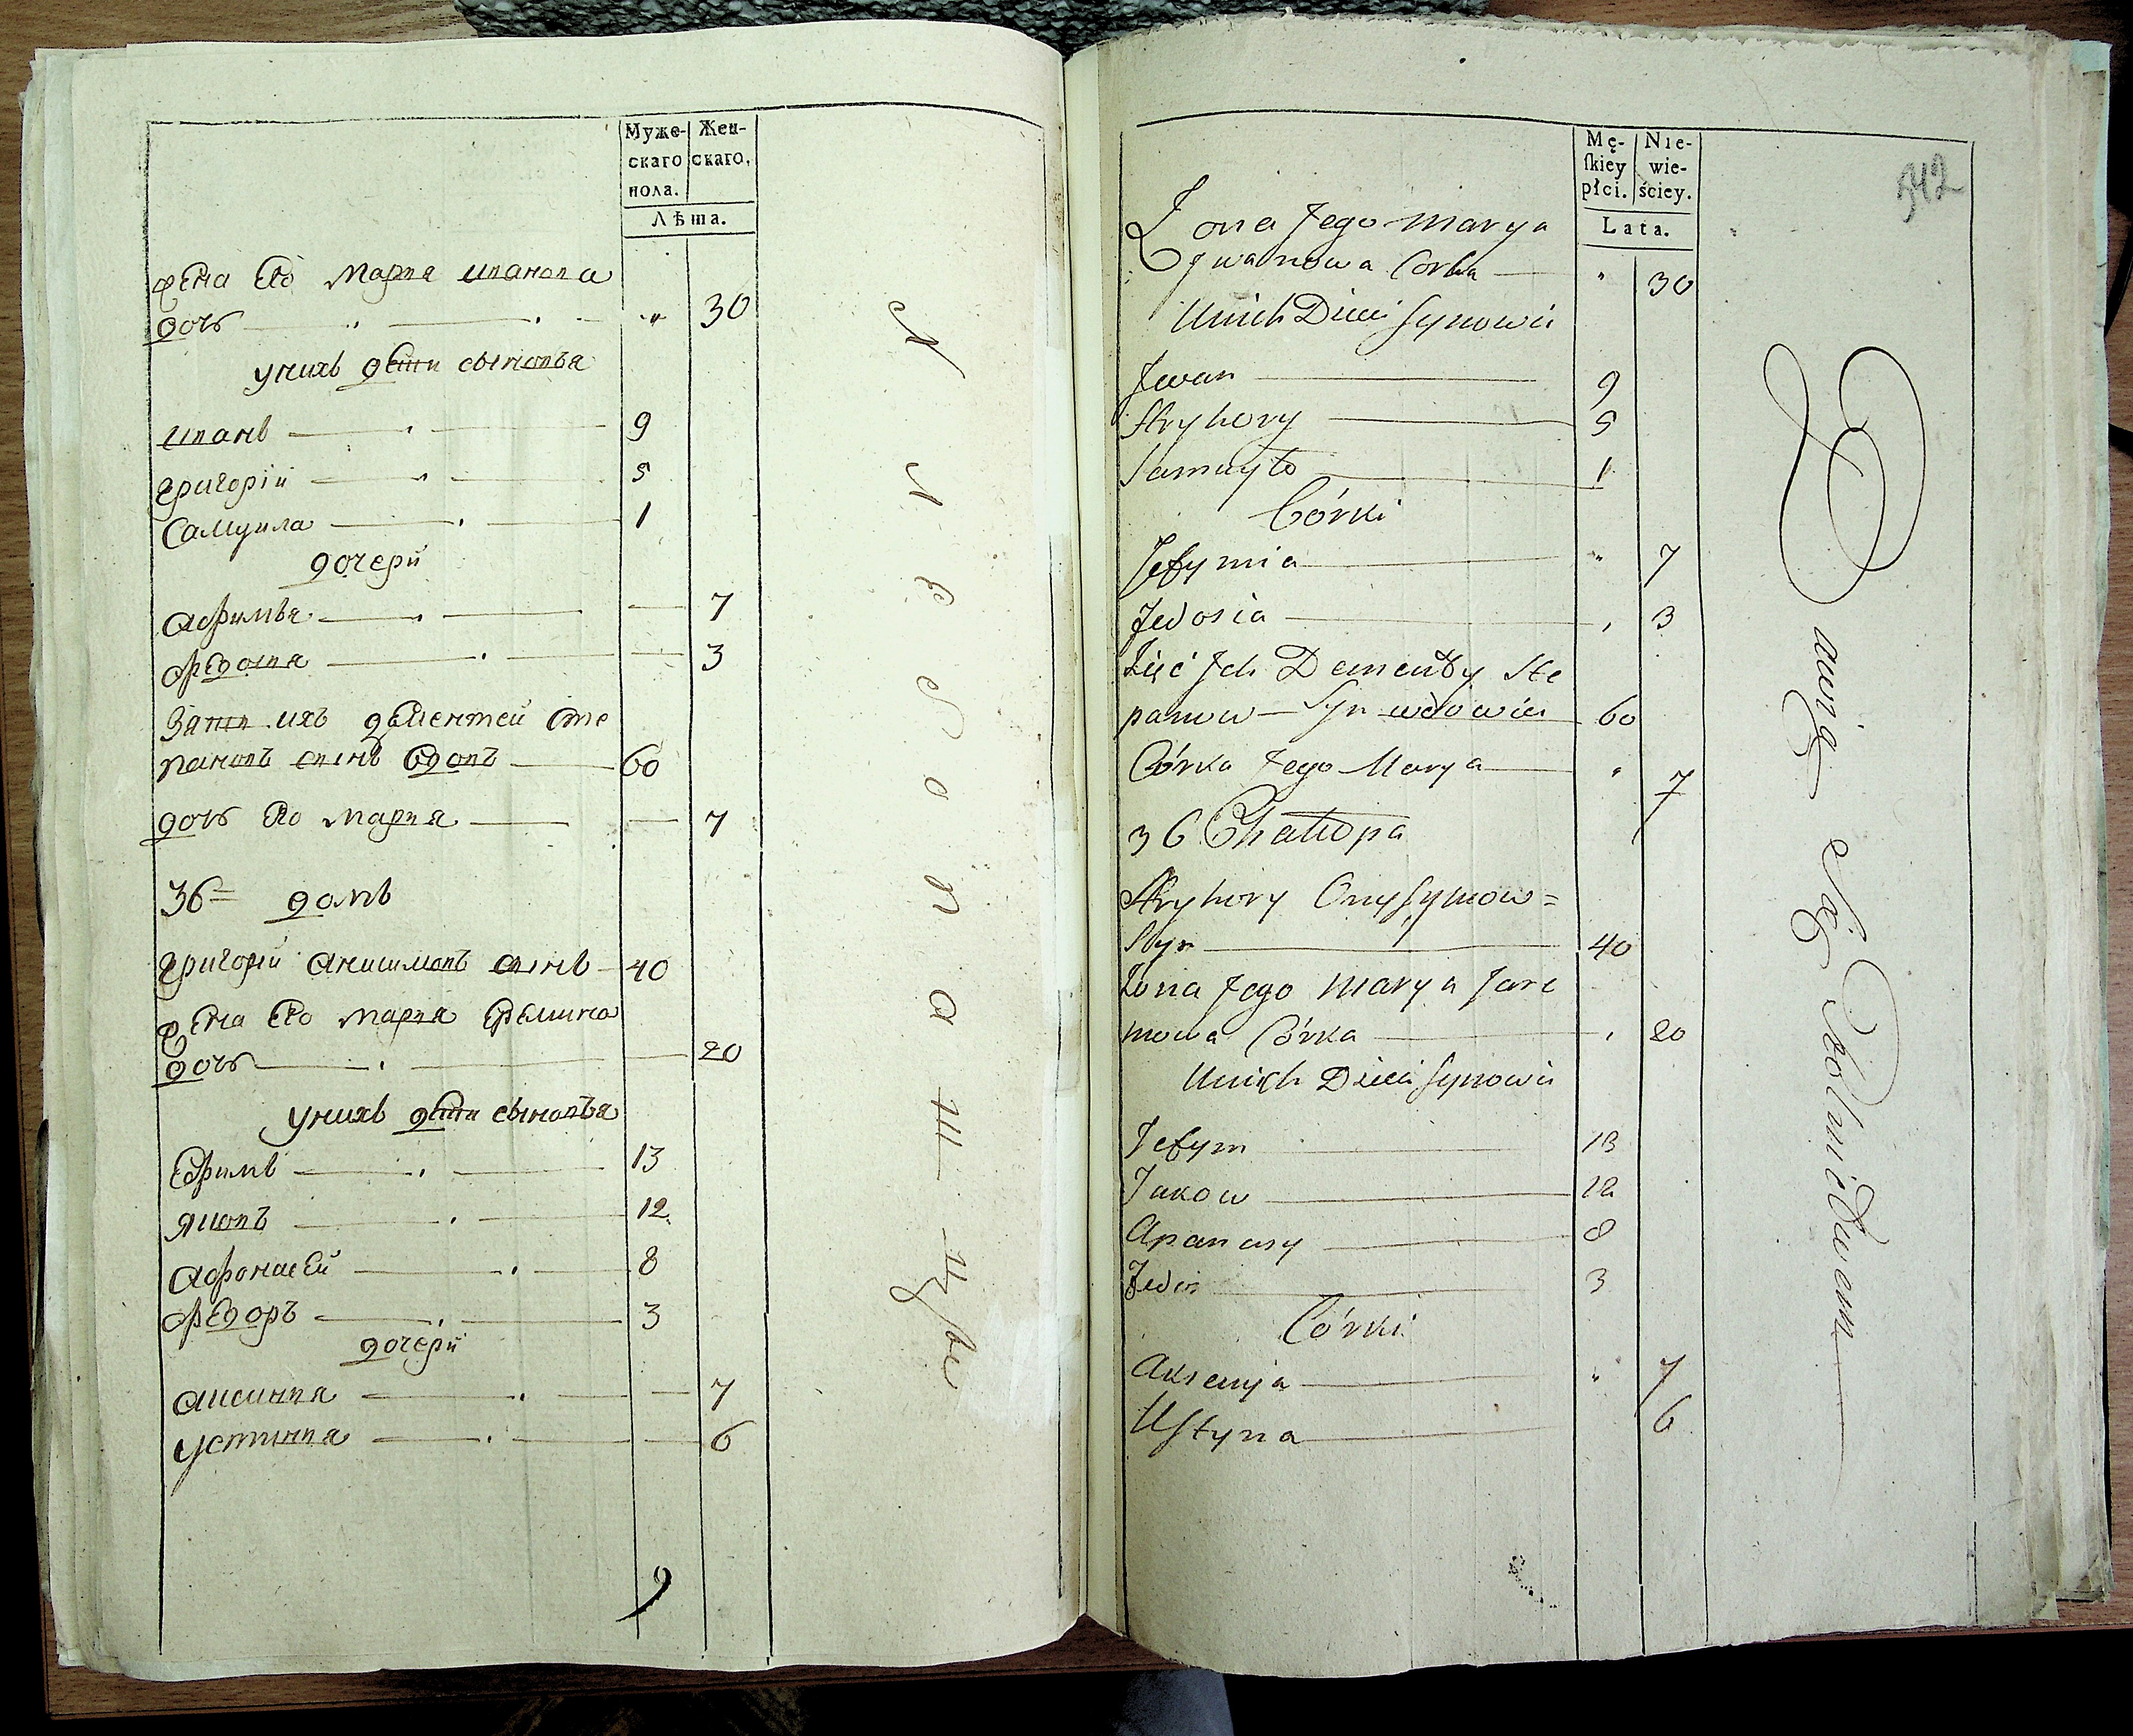 Муже-
скаго
пола.
Жен-
скаго.
Лѣта.
жена Его Мария иванова
дочь 30
у нихъ дети сыновья
иванъ 9
григорiи 5
Самуила 1
дочери
Афимья 7
Федосия 3
Зять ихъ дементей Сте
пановъ сынъ вдовъ 60
дочь Его Мария 7
36 домъ
григорiй Анисимовъ сынъ 40
жена Его Мария Еремина
дочь 20
у нихъ дети сыновья
Ефимъ 13
яковъ 12
Афонасей 8
Федоръ 3
дочери
Аксиния 7
устиния 6
9
342
Mę-
ſkiey
płci.
Nie-
wie-
ściey.
Lata.
Żona Jego Marya
Jwanowa Corka " 30
U nich Dzieci Synowie
Jwan 9
Hryhory 5
Samuyło 1
Córki
Jefymia " 7
Fedosia 3
Zięć Jch Dementy Ste
panow Syn wdowiec 60
Córka Jego Marya " 7
36 Chałupa
Hryhory Onysymow=
Syn 40
Żona Jego Marya Jare
mowa Córka 20
U nich Dzieci Synowie
Jefym 13
Jakow 12
Apanasy 8
Fedor 3
Córki
Aksenija " 7
Ustyna 6